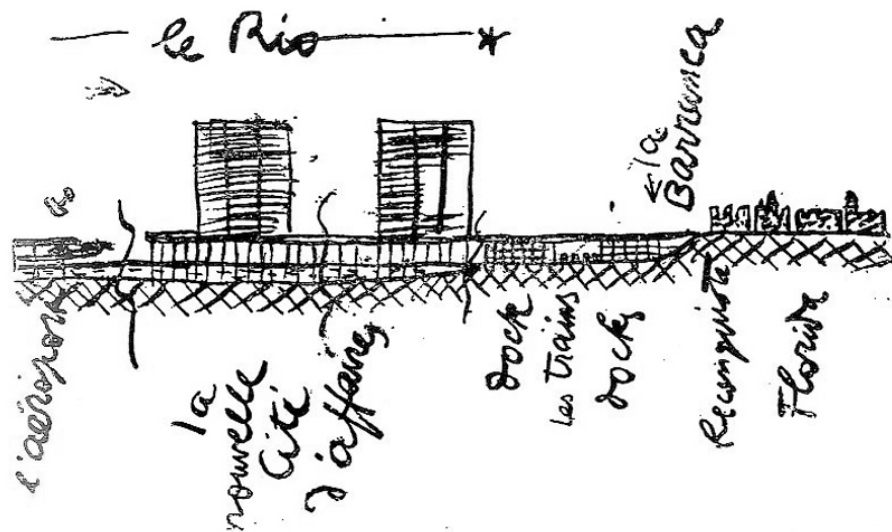 le Rio
*
← la
Barranca
l'aéroport
la
nouvelle
Cité
d'affaires
dock
les trains
docks
Reconquista
Florida